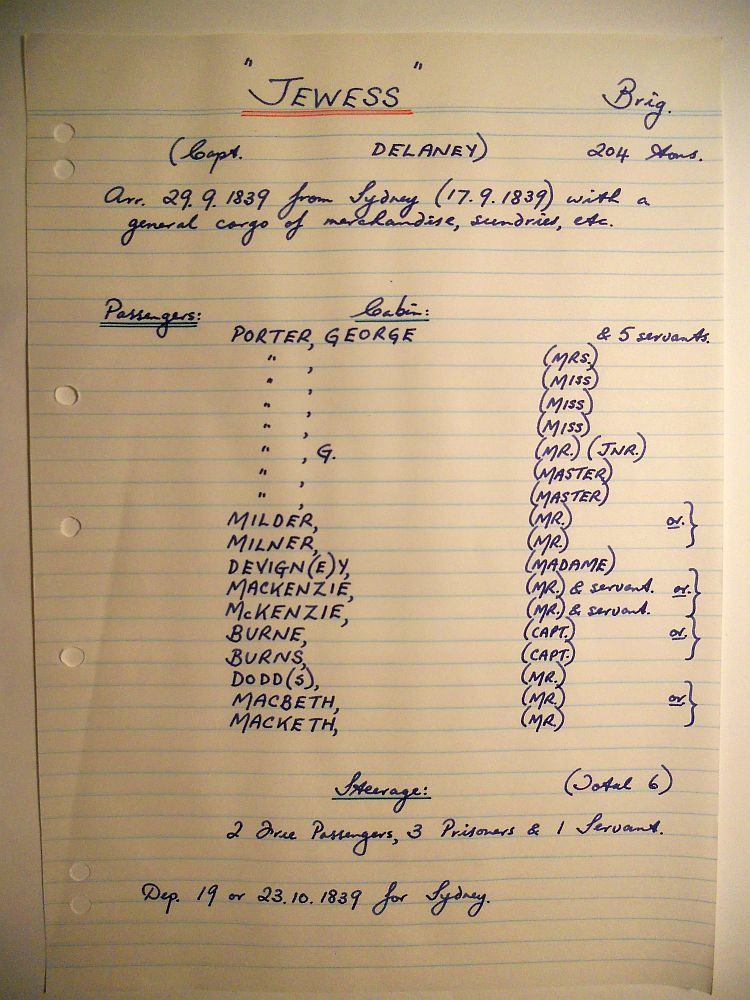 " JEWESS " Brig.
(Capt. DELANEY) 204 Tons.
Arr. 29.9.1839 from Sydney (17.9.1839) with a
general cargo of merchandise, sundries, etc.
Passengers: Cabin:
PORTER, GEORGE & 5 servants.
" , (MRS.)
" , (MISS)
" , (MISS)
" , (MISS)
" , G. (MR.) (JNR.)
" , (MASTER)
" , (MASTER)
MILDER, (MR.) or }
MILNER, (MR.)
DEVIGN(E)Y, (MADAME)
MACKENZIE, (MR.) & servant. or }
McKENZIE, (MR.) & servant.
BURNE, (CAPT.) or }
BURNS, (CAPT.)
DODD(S), (MR.)
MACBETH, (MR.) or }
MACKETH, (MR.)
Steerage: (Total 6)
2 Free Passengers, 3 Prisoners & 1 Servant.
Dep. 19 or 23.10.1839 for Sydney.